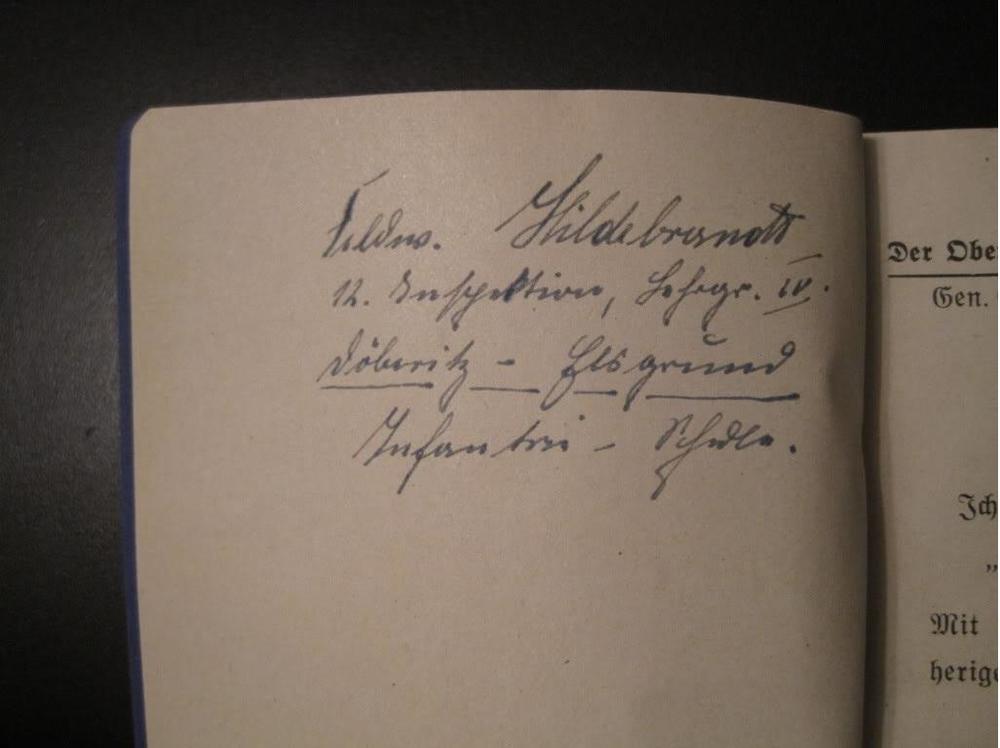 Feldw. Hildebrandt
12. Inspektion, Lehrgr. IV.
Döberitz - Elsgrund
Infanterie - Schule.
Der Obe
Gen.
Ich
„
Mit
herige